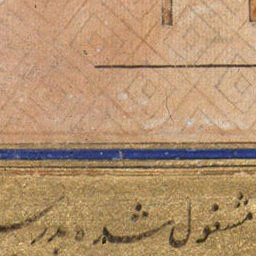 مشغول شده بدرس